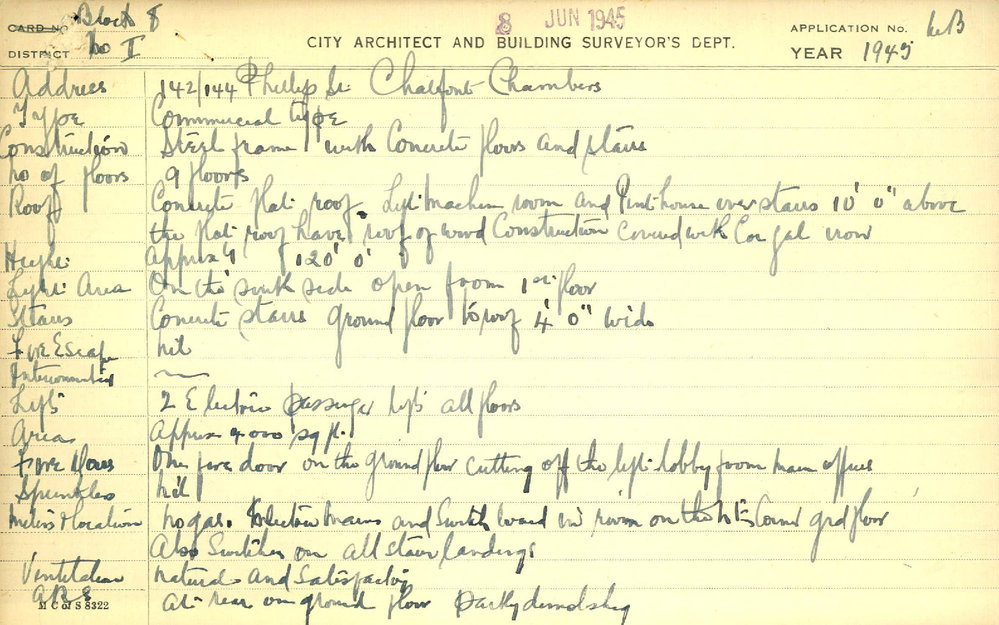 CARD NO. Block 8
8 JUN 1945
APPLICATION NO. LB
DISTRICT No I
CITY ARCHITECT AND BUILDING SURVEYOR'S DEPT.
YEAR 1945
Address 142/144 Phillip St. Chalfont Chambers
Type Commercial type
Construction Steel frame with Concrete floors and stairs
No of floors 9 floors
Roof Concrete flat roof. Lift Machine room and Penthouse over stairs 10' 0" above
the flat roof have roof of wood Construction covered with Cor gal iron
Height Approx 120' 0"
Light Area On the south side open from 1st floor
Stairs Concrete stairs ground floor to roof 4' 0" wide
Fire Escape nil
Intercommunication
Lifts 2 Electric passenger lifts all floors
Area Approx 4000 sq ft.
Fire Doors One fire door on the ground floor cutting off the lift lobby from main offices
Sprinklers nil
Meters & location No gas. Electric Mains and Switch board in room on the N E Corner grd floor
Also Switches on all stair landings
Ventilation Natural and Satisfactory
ARS At rear on ground floor partly
M C of S 8322